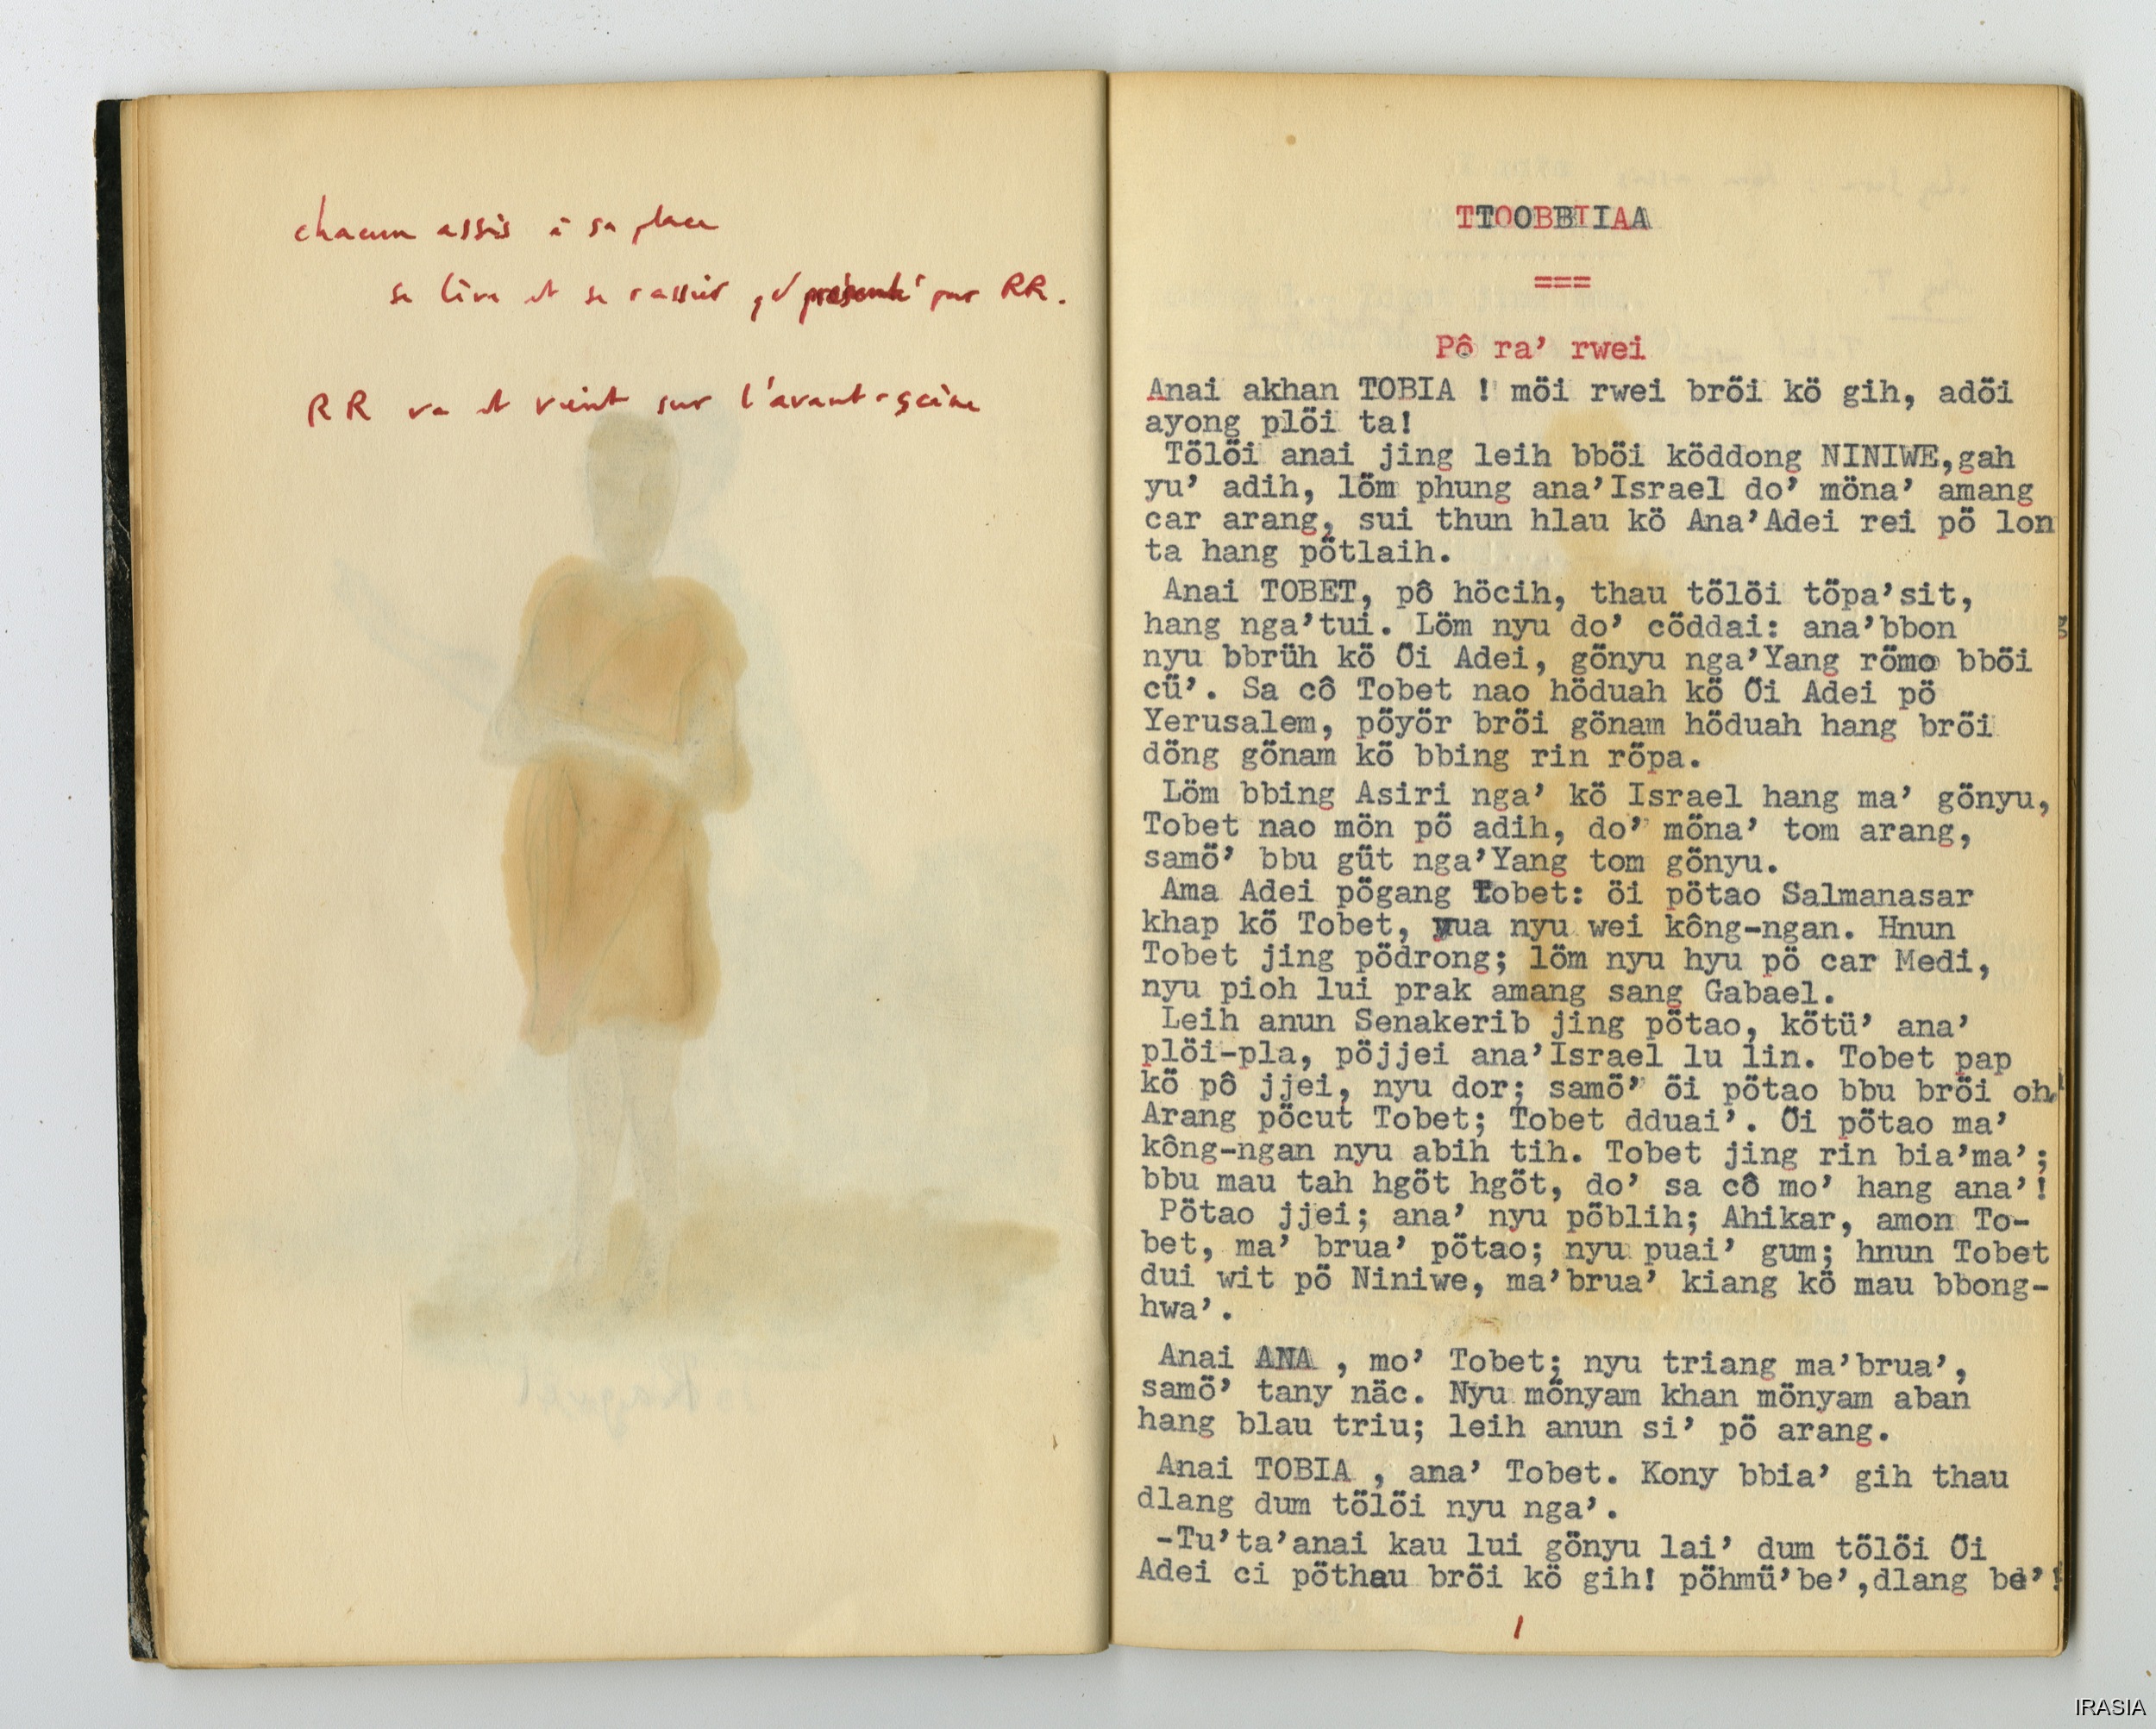 chacun assis à sa place
se lève et se rassied qd présenté par RR.
RR va et vient sur l'avant-scène
TTOOBBIIAA
===
Pô ra’ rwei
Anai akhan TOBIA ! möi rwei brői kö gih, adői
ayong plői ta!
Tőlői anai jing leih bbői köddong NINIWE,gah
yu’ adih, löm phung ana’Israel do’ möna’ amang
car arang, sui thun hlau kö Ana’Adei rei pö lon
ta hang pőtlaih.
Anai TOBET, pô höcih, thau tőlői tőpa’sit,
hang nga’tui. Löm nyu do’ cöddai: ana’bbon
nyu bbrüh kö Ői Adei, gőnyu nga’Yang rőmo bbői
cü’. Sa cô Tobet nao höduah kö Ői Adei pö
Yerusalem, pőyőr brői gönam höduah hang brői
döng gönam kő bbing rin rőpa.
Löm bbing Asiri nga’ kö Israel hang ma’ gőnyu,
Tobet nao mön pö adih, do’ möna’ tom arang,
samő’ bbu güt nga’Yang tom gőnyu.
Ama Adei pőgang Tobet: öi pötao Salmanasar
khap kö Tobet, yua nyu wei kông-ngan. Hnun
Tobet jing pödrong; löm nyu hyu pö car Medi,
nyu pioh lui prak amang sang Gabael.
Leih anun Senakerib jing pőtao, kőtü’ ana’
plöi-pla, pöjjei ana’Israel lu lin. Tobet pap
kö pô jjei, nyu dor; samő’ öi pötao bbu brői oh
Arang pőcut Tobet; Tobet dduai’. Ői pötao ma’
kông-ngan nyu abih tih. Tobet jing rin bia’ma’;
bbu mau tah hgöt hgöt, do’ sa cô mo’ hang ana’!
Pötao jjei; ana’ nyu pőblih; Ahikar, amon To-
bet, ma’ brua’ pötao; nyu puai’ gum; hnun Tobet
dui wit pö Niniwe, ma’brua’ kiang kö mau bbong-
hwa’.
Anai ANA , mo’ Tobet; nyu triang ma’brua’,
samő’ tany näc. Nyu mőnyam khan mönyam aban
hang blau triu; leih anun si’ pö arang.
Anai TOBIA , ana’ Tobet. Kony bbia’ gih thau
dlang dum tőlői nyu nga’.
-Tu’ta’anai kau lui gőnyu lai’ dum tőlői Ői
Adei ci pöthau brői kö gih! pőhmü’be’,dlang be’!
1
IRASIA